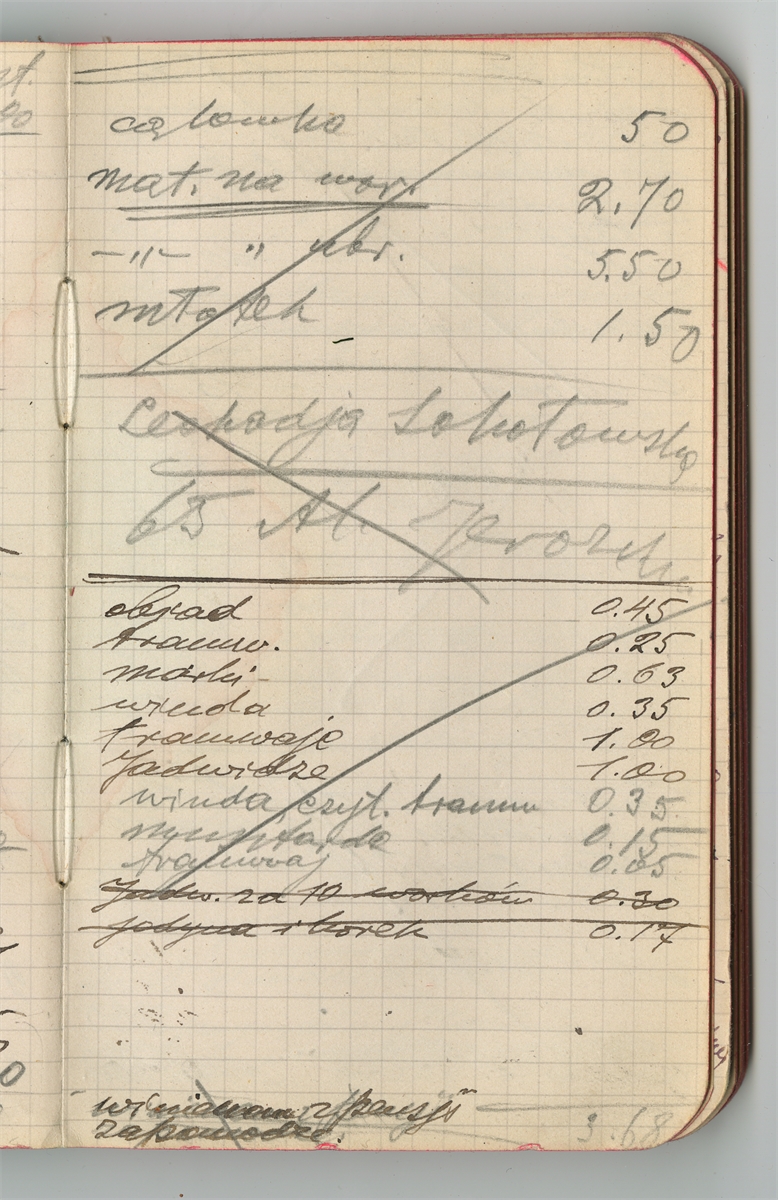 całówka 50
mat. na wor. 2.70
-„- „ ubr. 5.50
młotek 1.50
Leokadja Sokołowska
65 Al. Jerozol.
objad 0.45
tramw. 0.25
marki 0.63
winda 0.35
tramwaje 1.00
Jadwidze 1.00
winda, czyt. tramw 0.35
0.15
tramwaj 0.05
Jadw. za 10 worków 0.30
jodyna i korek 0.17
z pensji
3.68